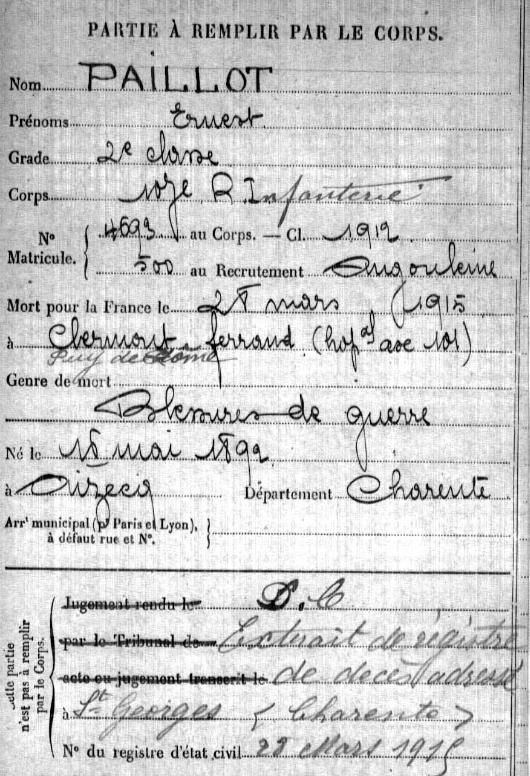 PARTIE À REMPLIR PAR LE CORPS.
Nom PAILLOT
Prénoms Ernest
Grade 2e classe
Corps 107e R Infanterie
N° Matricule. 4693 au Corps. — Cl. 1912
500 au Recrutement Angoulême
Mort pour la France le 28 mars 1915
à Clermont-ferrand (hop al axe 101)
Puy de Dôme
Genre de mort
Blessures de guerre
Né le 18 mai 1892
à Oizecq Département Charente
Arrt municipal (pr Paris et Lyon),
à défaut rue et N°.
cette partie n'est pas à remplir par le Corps.
Jugement rendu le D.C
par le Tribunal de Extrait de registre
acte ou jugement transcrit le de décès adressé
à St Georges (Charente)
N° du registre d'état civil 28 Mars 1915